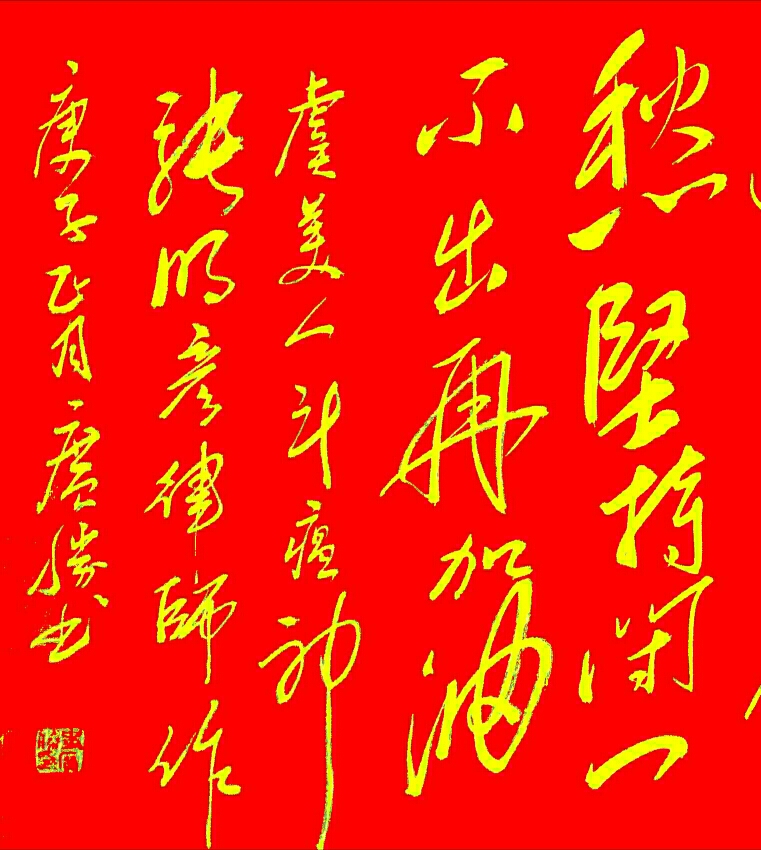 愁堅持闭门
不出再加油
虞美人斗瘟神
张明彦律師作
庚子正月廣勝书